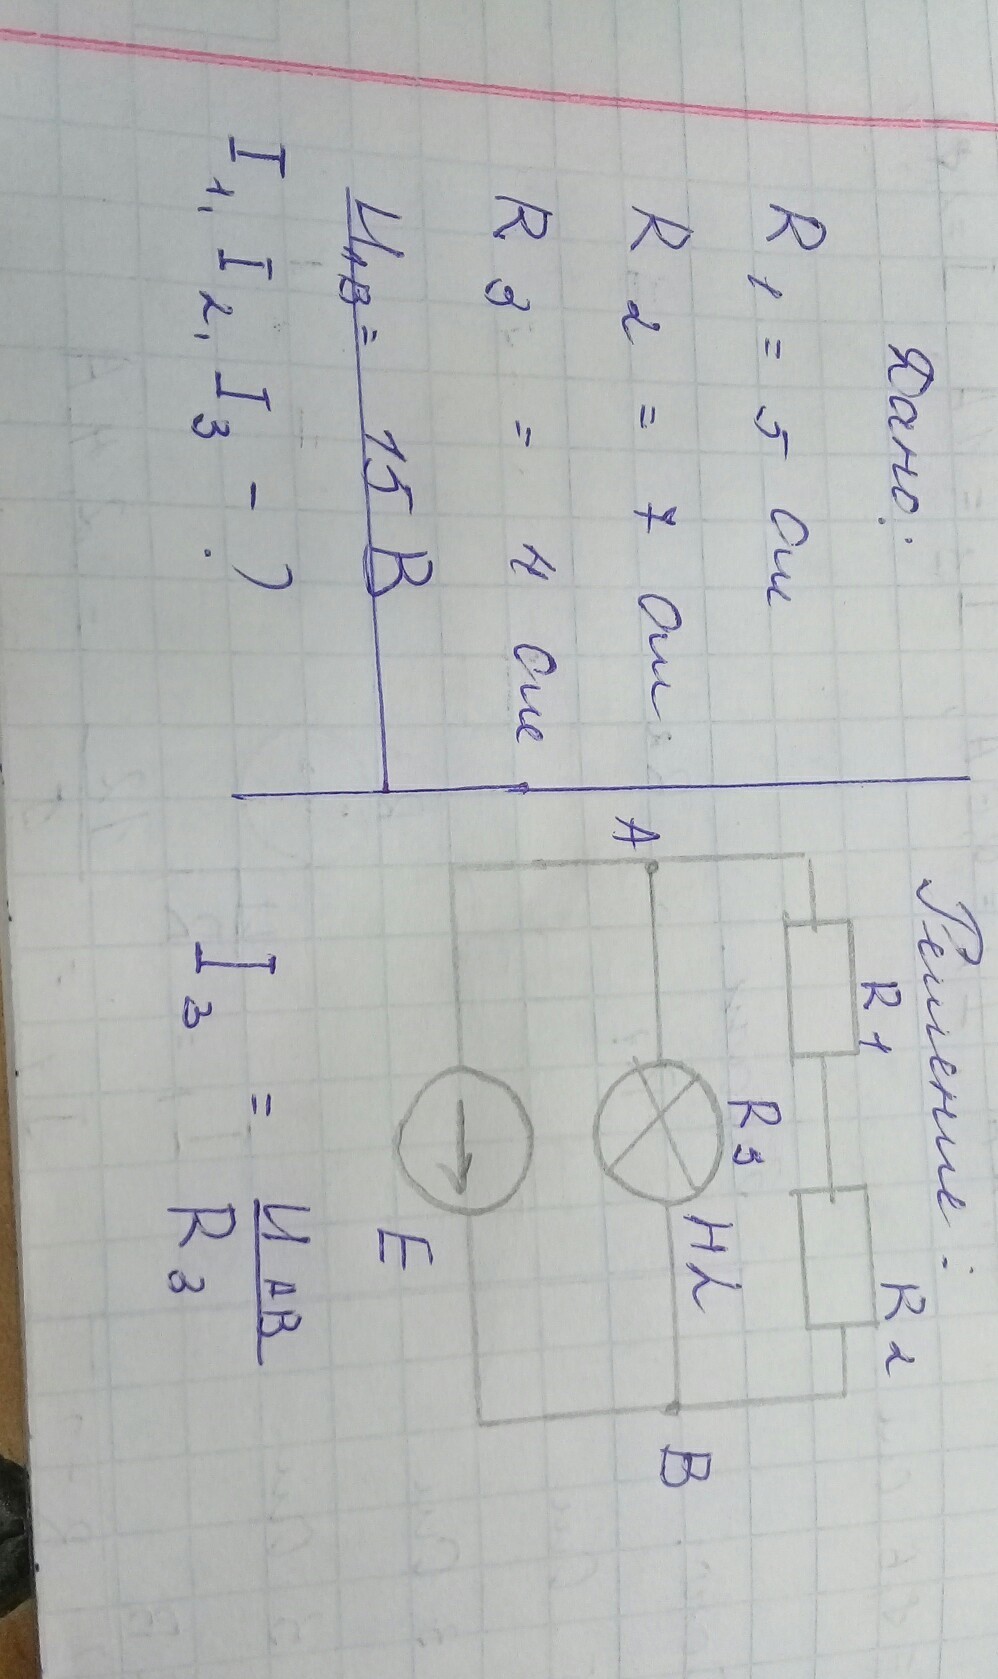 Дано:
R1 = 5 Ом
R2 = 7 Ом
R3 = 4 Ом
UAB = 15 В
I1, I2, I3 - ?
Решение:
R1
R2
R3
HL
A
B
E
I3 = UAB
R3